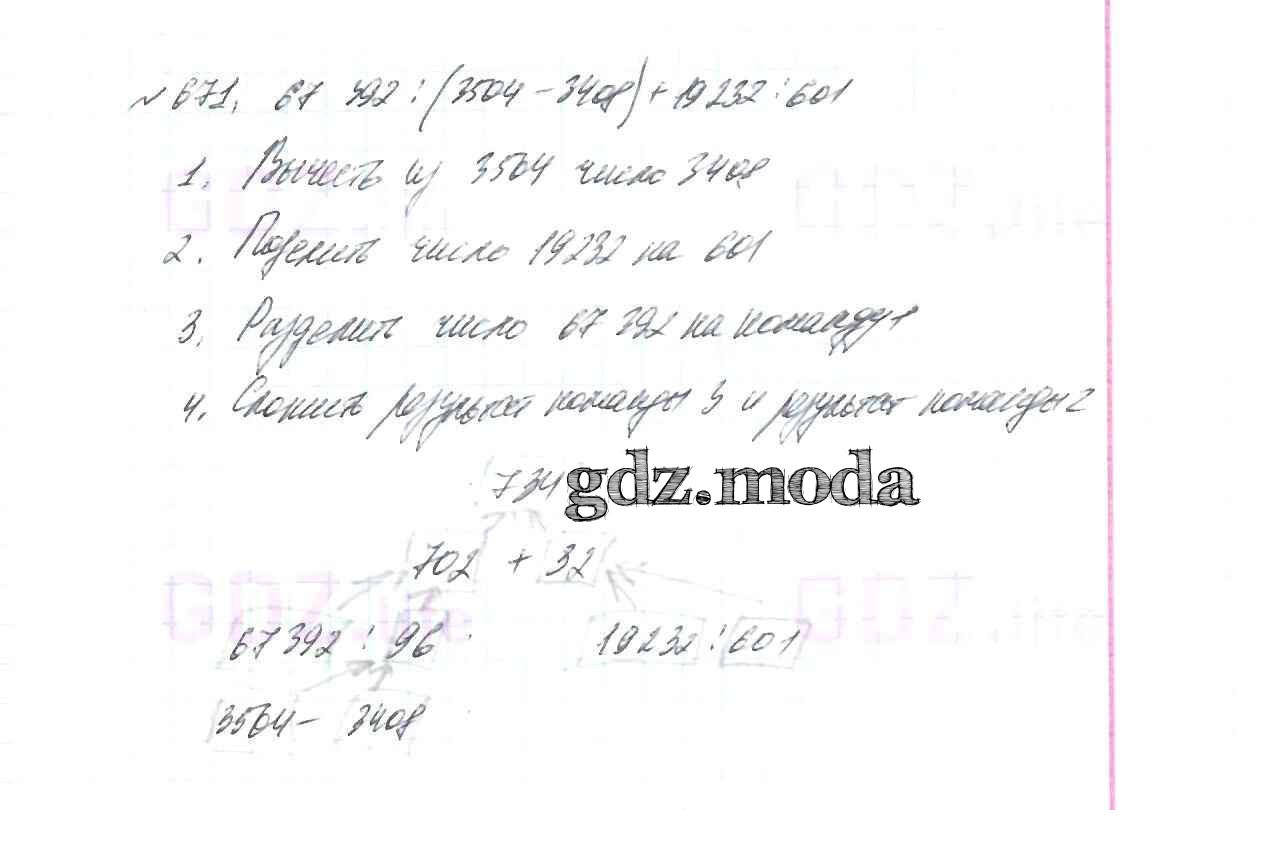 №671. 67 392 : (3504 – 3408) + 19232 : 601
1. Вычесть из 3504 число 3408
2. Поделить число 19232 на 601
3. Разделить число 67 392 на команду 1
4. Сложить результат команды 3 и результат команды 2
734
gdz.moda
702 + 32
67392 : 96
19232 : 601
3504 – 3408